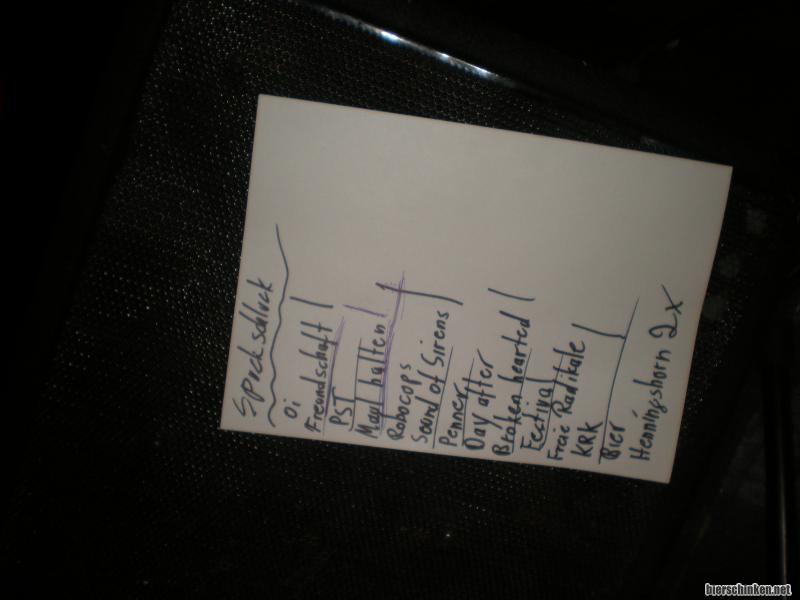 Oi
Freundschaft
PST
Maul halten!
Robocops
Sound of Sirens
Penner
Day after
Broken hearted
Festival
Freie Radikale
KRK
Bier
Henningshorn 2x
bierschinken.net